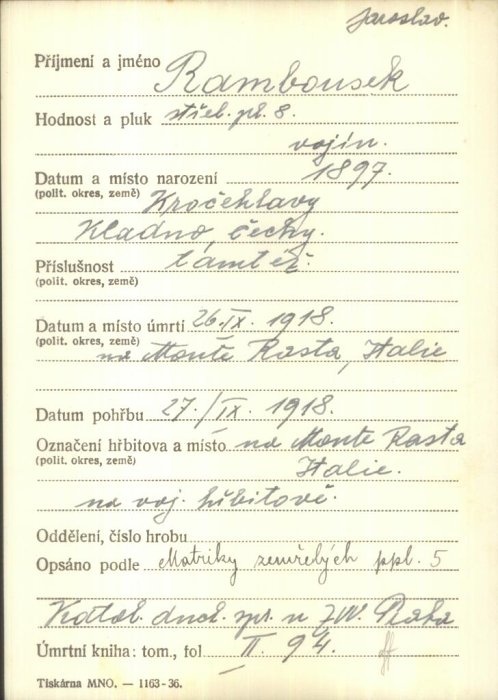 Jaroslav.
Příjmení a jméno Rambousek
Hodnost a pluk střel. pl. 8.
vojín.
Datum a místo narození 1897.
(polit. okres, země) Kročehlavy
Kladno, Čechy.
Příslušnost tamtéž.
(polit. okres, země)
Datum a místo úmrtí 26. IX. 1918.
(polit. okres, země) na Monte Rasta, Italie
Datum pohřbu 27./IX. 1918.
Označení hřbitova a místo na Monte Rasta
(polit. okres, země) Italie.
na voj. hřbitově.
Oddělení, číslo hrobu
Opsáno podle Matriky zemřelých ppl. 5
Katol. duch. spr. u ZVV. Praha
Úmrtní kniha: tom., fol II. 94.
Tiskárna MNO. — 1163-36.